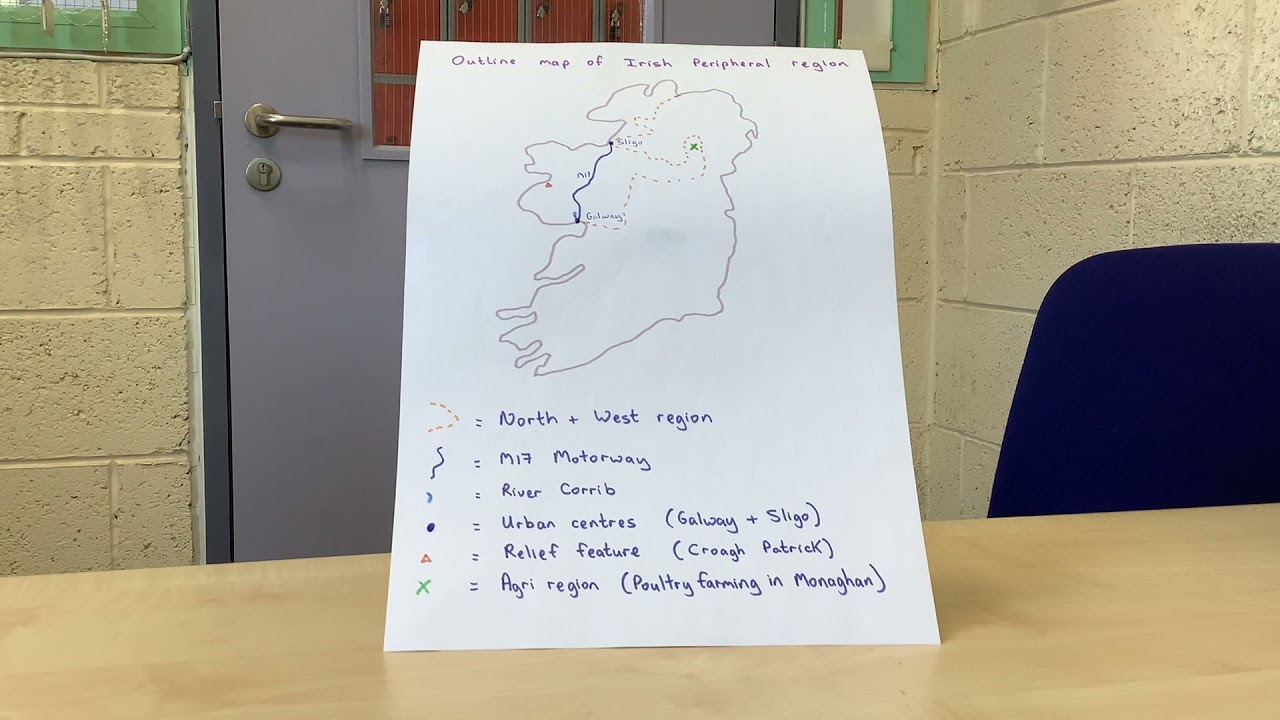 Outline map of Irish Peripheral region
Sligo
M17
Galway
= North + West region
= M17 Motorway
= River Corrib
= Urban centres (Galway + Sligo)
= Relief feature (Croagh Patrick)
= Agri region (Poultry farming in Monaghan)